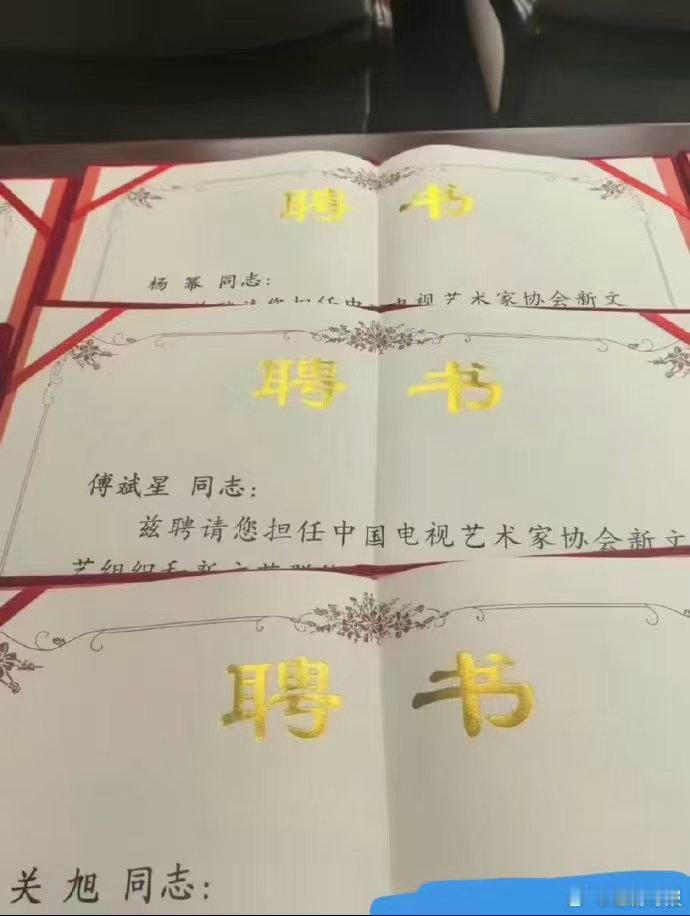 聘 书
杨 幂 同志：
兹聘请您担任中 电视艺术家协会新文
聘 书
傅斌星 同志：
兹聘请您担任中国电视艺术家协会新文
艺组织和新文艺群体
聘 书
关 旭 同志：